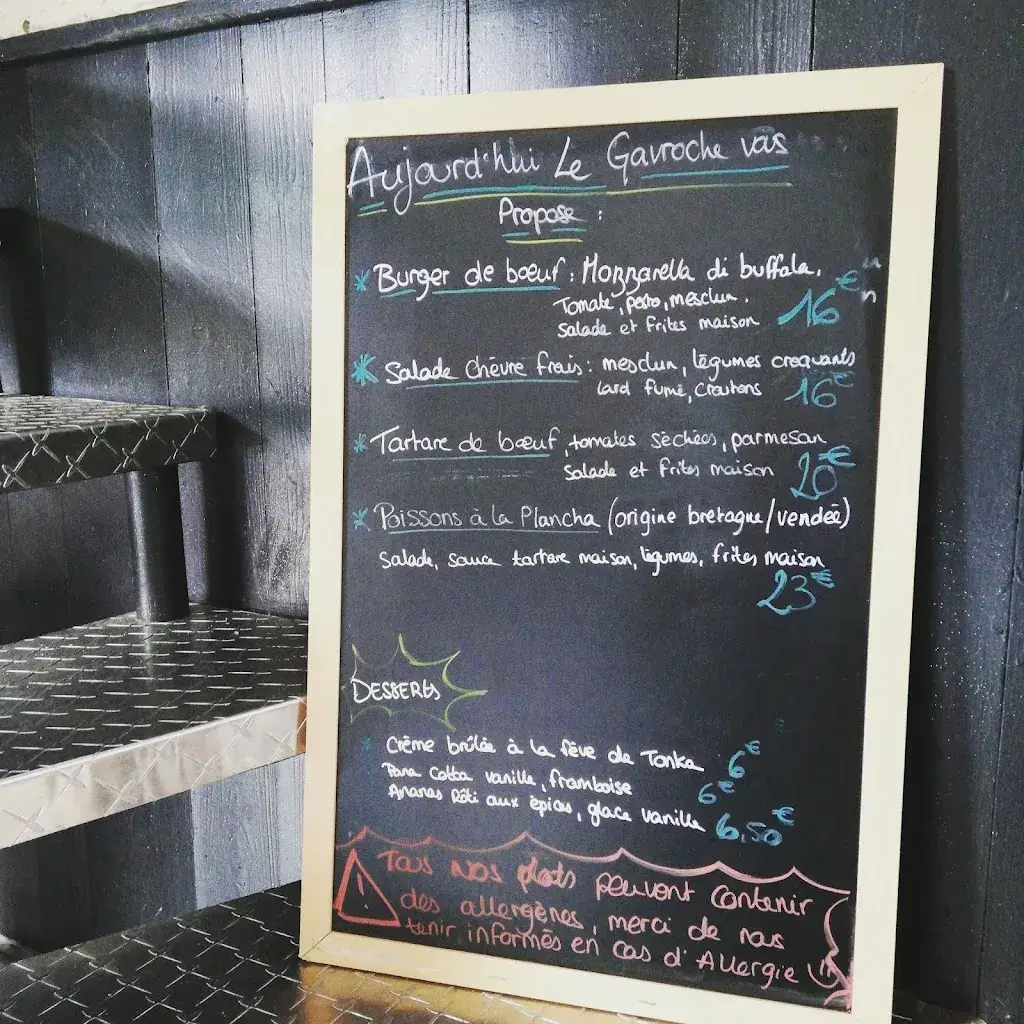 Aujourd'hui Le Gavroche vas
Propose :
* Burger de bœuf : Mozzarella di buffala,
Tomate, pesto, mesclun.
Salade et frites maison 16€
* Salade Chèvre frais : mesclun, légumes croquants
lard fumé, croutons 16€
* Tartare de bœuf, tomates sèchées, parmesan
Salade et frites maison 20€
* Poissons à la Plancha (origine bretagne/vendée)
Salade, sauce tartare maison, légumes, frites maison
23€
DESSERTS
* Crème brûlée à la fève de Tonka 6€
Pana Cotta vanille, framboise 6€
Ananas Rôti aux épices, glace vanille 6,50€
! Tous nos plats peuvent contenir
des allergènes, merci de nous
tenir informés en cas d'Allergie